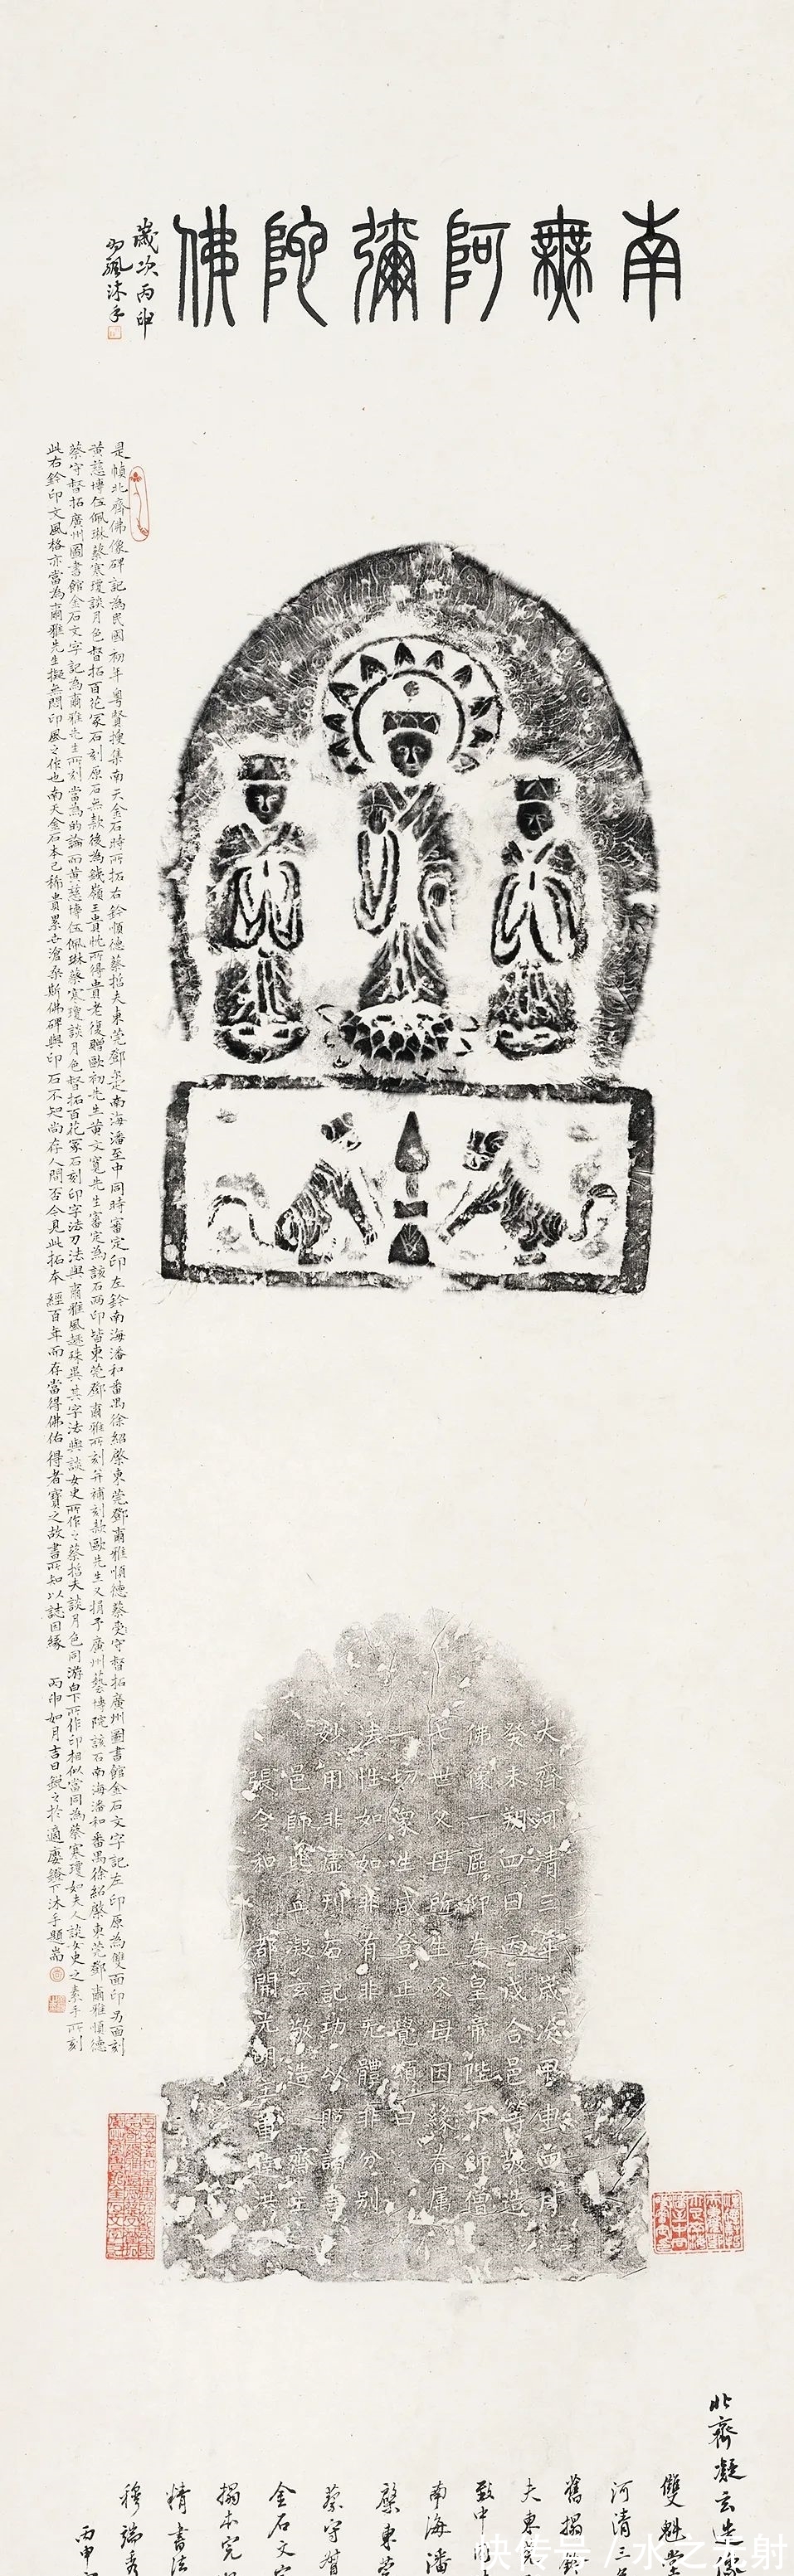 南無阿彌陀佛
歲次丙申
沐手
是幀北齊佛像碑記為民國初年粵賢搜集南天金石時所拓右鈐順德蔡哲夫東莞鄧爾疋南海潘至中同時審定印左鈐南海潘和番禺徐紹棨東莞鄧爾雅順德蔡守督拓廣州圖書館金石文字記左印原為雙面印另面刻
黃慈博伍佩琳蔡寒瓊談月色督拓百花冢石刻原石無款後為鐵嶺王貴忱所得貴老復贈歐初先生黃文寬先生審定為該石兩印皆東莞鄧爾雅所刻并補刻款歐先生又捐予廣州藝博院該石南海潘和番禺徐紹棨東莞鄧爾雅順德
蔡守督拓廣州圖書館金石文字記為爾雅先生所刻當為的論而黃慈博伍佩琳蔡寒瓊談月色督拓百花冢石刻印字法刀法與爾雅風趣殊異其字法與談女史所作之蔡哲夫談月色同游白下所作印相似當同為蔡寒瓊如夫人談女史之素手所刻
此右鈐印文風格亦當為爾雅先生擬無悶印風之作也南天金石本已稀貴累世滄桑斯佛碑與印石不知尚存人間否今見此拓本經百年而存當得佛佑得者寶之故書所知以誌因緣 丙申如月吉日銳之於適廬鐙下沐手題耑
大齊河清三年歲次
癸未朔四日丙戌合邑等敬造
佛像一區仰為皇帝陛下師僧
七世父母所生父母因緣眷屬
一切眾生咸登正覺頌曰
法性如如非有非無體非分別
妙用非虛刊石記功以昭
邑師比丘凝玄敬造 齋主
張令和 都開光明主
北齊凝玄造像
雙魁堂
河清三年
舊搨鈐
夫東莞
致中同
南海潘
棨東莞
蔡守督
金石文字
搨本完
精書法
穆端秀
丙申
快传号/水之无射